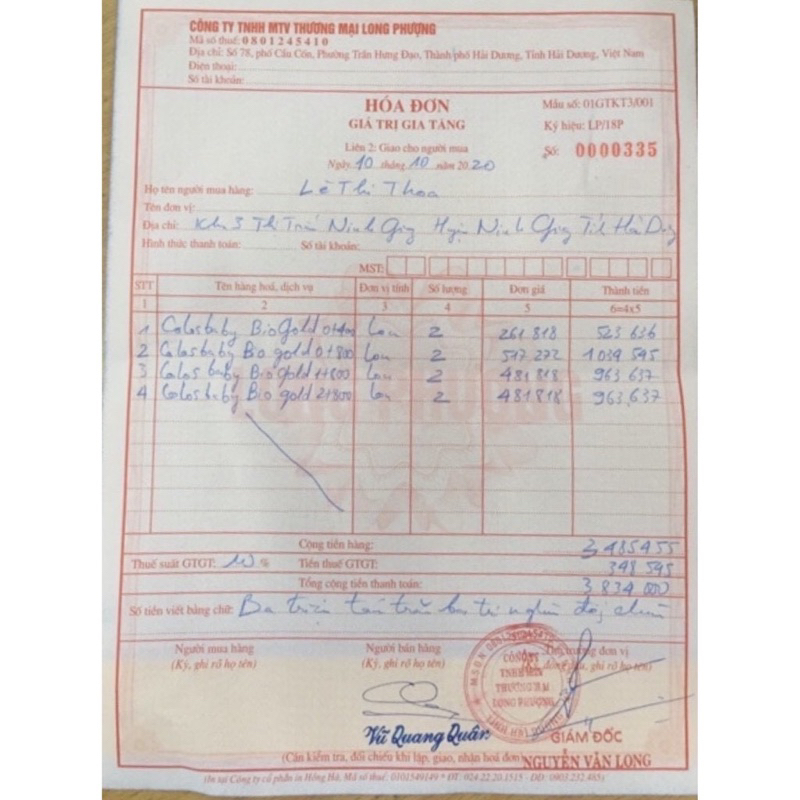 CÔNG TY TNHH MTV THƯƠNG MẠI LONG PHƯỢNG
Mã số thuế: 0801245410
Địa chỉ: Số 78, phố Cầu Cốn, Phường Trần Hưng Đạo, Thành phố Hải Dương, Tỉnh Hải Dương, Việt Nam
Điện thoại:
Số tài khoản:
HÓA ĐƠN
GIÁ TRỊ GIA TĂNG
Mẫu số: 01GTKT3/001
Ký hiệu: LP/18P
Liên 2: Giao cho người mua
Số: 0000335
Ngày 10 tháng 10 năm 2020
Họ tên người mua hàng: Lê Thị Thoa
Tên đơn vị:
Địa chỉ: Khu 3 Thị Trấn Ninh Giang Huyện Ninh Giang Tỉnh Hải Dương
Hình thức thanh toán: Số tài khoản:
MST:
STT Tên hàng hoá, dịch vụ Đơn vị tính Số lượng Đơn giá Thành tiền
1 2 3 4 5 6=4x5
1 Colosbaby Bio Gold 0+400 Lon 2 261 818 523 636
2 Colosbaby Bio gold 0+800 Lon 2 517 272 1 034 545
3 Colosbaby Bio gold 1+800 Lon 2 481 818 963 637
4 Colosbaby Bio gold 2+800 Lon 2 481 818 963,637
Cộng tiền hàng: 3 485455
Thuế suất GTGT: 10 % Tiền thuế GTGT: 348 545
Tổng cộng tiền thanh toán: 3 834 000
Số tiền viết bằng chữ: Ba triệu tám trăm ba tư nghìn đồng chẵn
Người mua hàng Người bán hàng Thủ trưởng đơn vị
(Ký, ghi rõ họ tên) (Ký, ghi rõ họ tên) đóng dấu, ghi rõ họ tên)
M.S.D.N: 0801245410
CÔNG TY
TNHH MTV
THƯƠNG MẠI
LONG PHƯỢNG
Vũ Quang Quân
GIÁM ĐỐC
NGUYỄN VĂN LONG
(Cần kiểm tra, đối chiếu khi lập, giao, nhận hoá đơn)
(In tại Công ty cổ phần in Hồng Hà, Mã số thuế: 0101549149 * ĐT: 024.22.20.1515 - DĐ: 0903.232.465)